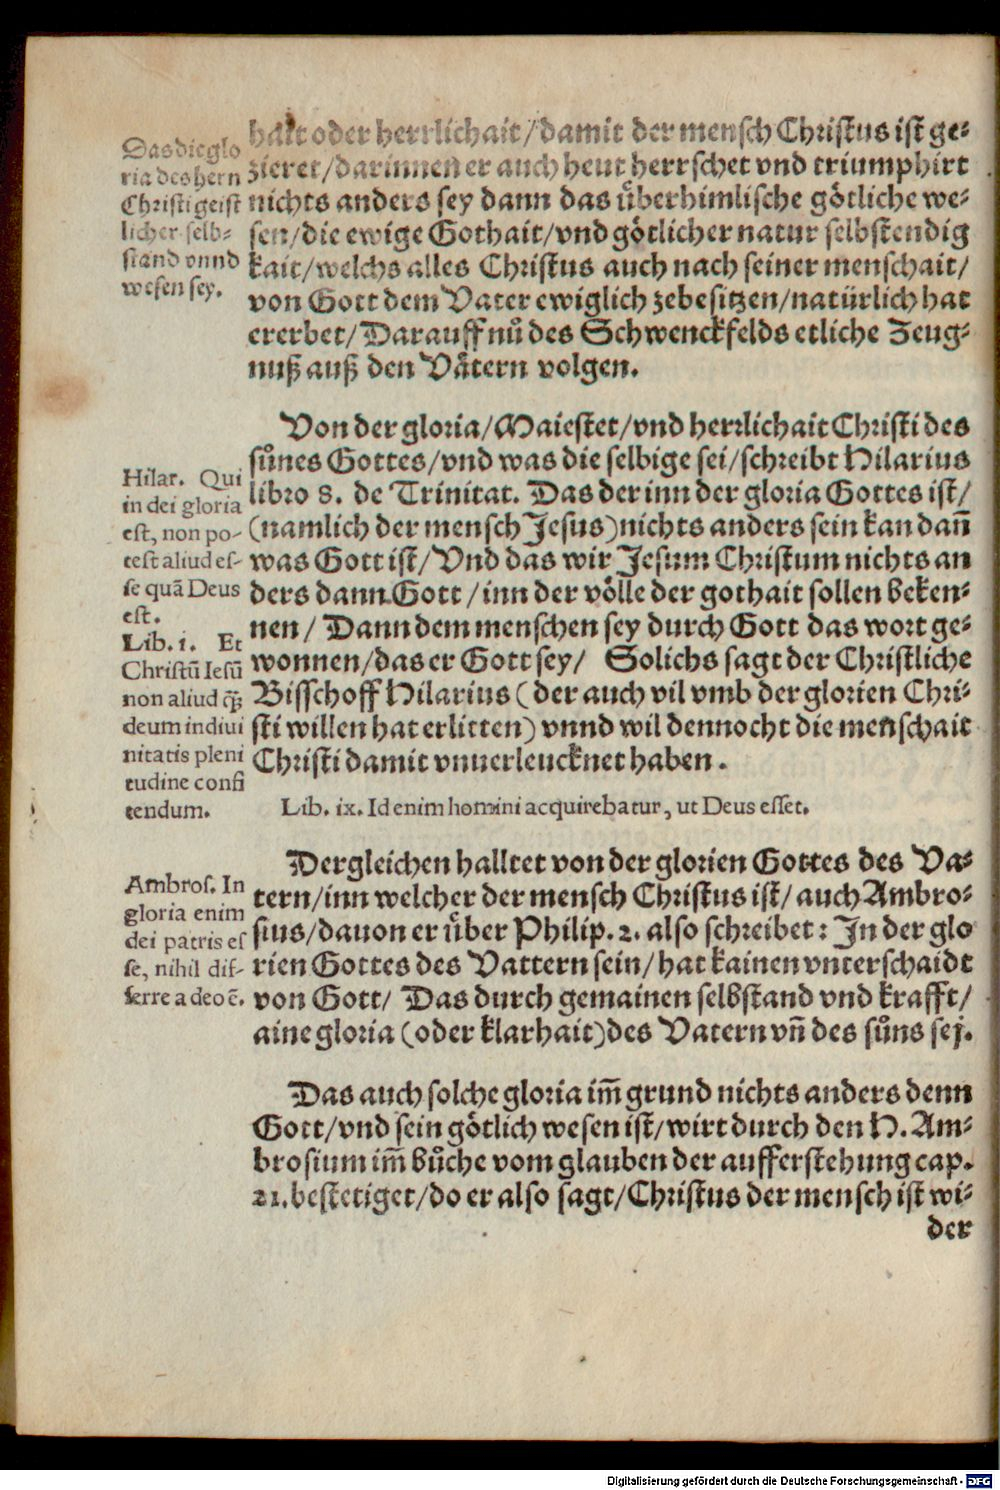 hait oder herrlichait/damit der mensch Christus ist ge-
zieret/darinnen er auch heut herrschet vnd triumphirt
nichts anders sey dann das uͤberhimlische goͤtliche we-
sen/die ewige Gothait/vnd goͤtlicher natur selbstendig
kait/welchs alles Christus auch nach seiner menschait/
von Gott dem Vater ewiglich zebesitzen/natürlich hat
ererbet/Darauff nuͦ des Schwenckfelds etliche Zeug-
nuß auß den Vaͤtern volgen.
Das die glo
ria des hern
Christi geist
licher selb-
stand vnnd
wesen sey.
Von der gloria/Maiestet/vnd herrlichait Christi des
suͦnes Gottes/vnd was die selbige sei/schreibt Hilarius
libro 8. de Trinitat. Das der inn der gloria Gottes ist/
(namlich der mensch Jesus)nichts anders sein kan dañ
was Gott ist/Vnd das wir Jesum Christum nichts an
ders dann Gott/inn der voͤlle der gothait sollen beken-
nen/ Dann dem menschen sey durch Gott das wort ge-
wonnen/das er Gott sey/ Solichs sagt der Christliche
Bisschoff Hilarius (der auch vil vmb der glorien Chri-
sti willen hat erlitten) vnnd wil dennocht die menschait
Christi damit vnuerleucknet haben.
Lib. ix. Id enim homini acquirebatur, ut Deus esset.
Hilar. Qui
in dei gloria
est, non po-
test aliud es-
se quã Deus
est.
Lib. i. Et
Christũ Iesũ
non aliud q̃ꝫ
deum in diui
nitatis pleni
tudine confi
tendum.
Dergleichen halltet von der glorien Gottes des Va-
tern/inn welcher der mensch Christus ist/auch Ambro-
sius/dauon er uͤber Philip. 2. also schreibet: In der glo
rien Gottes des Vattern sein/hat kainen vnterschaidt
von Gott/ Das durch gemainen selbstand vnd krafft/
aine gloria (oder klarhait)des Vatern vñ des suͦns sej.
Ambros. In
gloria enim
dei patris es
se, nihil dif-
ferre a deo ẽ.
Das auch solche gloria im̃ grund nichts anders denn
Gott/vnd sein goͤtlich wesen ist/wirt durch den H. Am-
brosium im̃ buͦche vom glauben der aufferstehung cap.
21. bestetiget/do er also sagt/Christus der mensch ist wi-
der
Digitalisierung gefördert durch die Deutsche Forschungsgemeinschaft - DFG